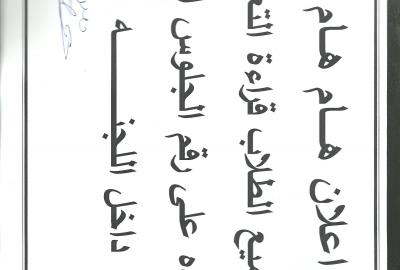 اعلان هام هام
يع الطلاب قراءة الت
ه على رقم الجلوس
داخل اللجنــــــه